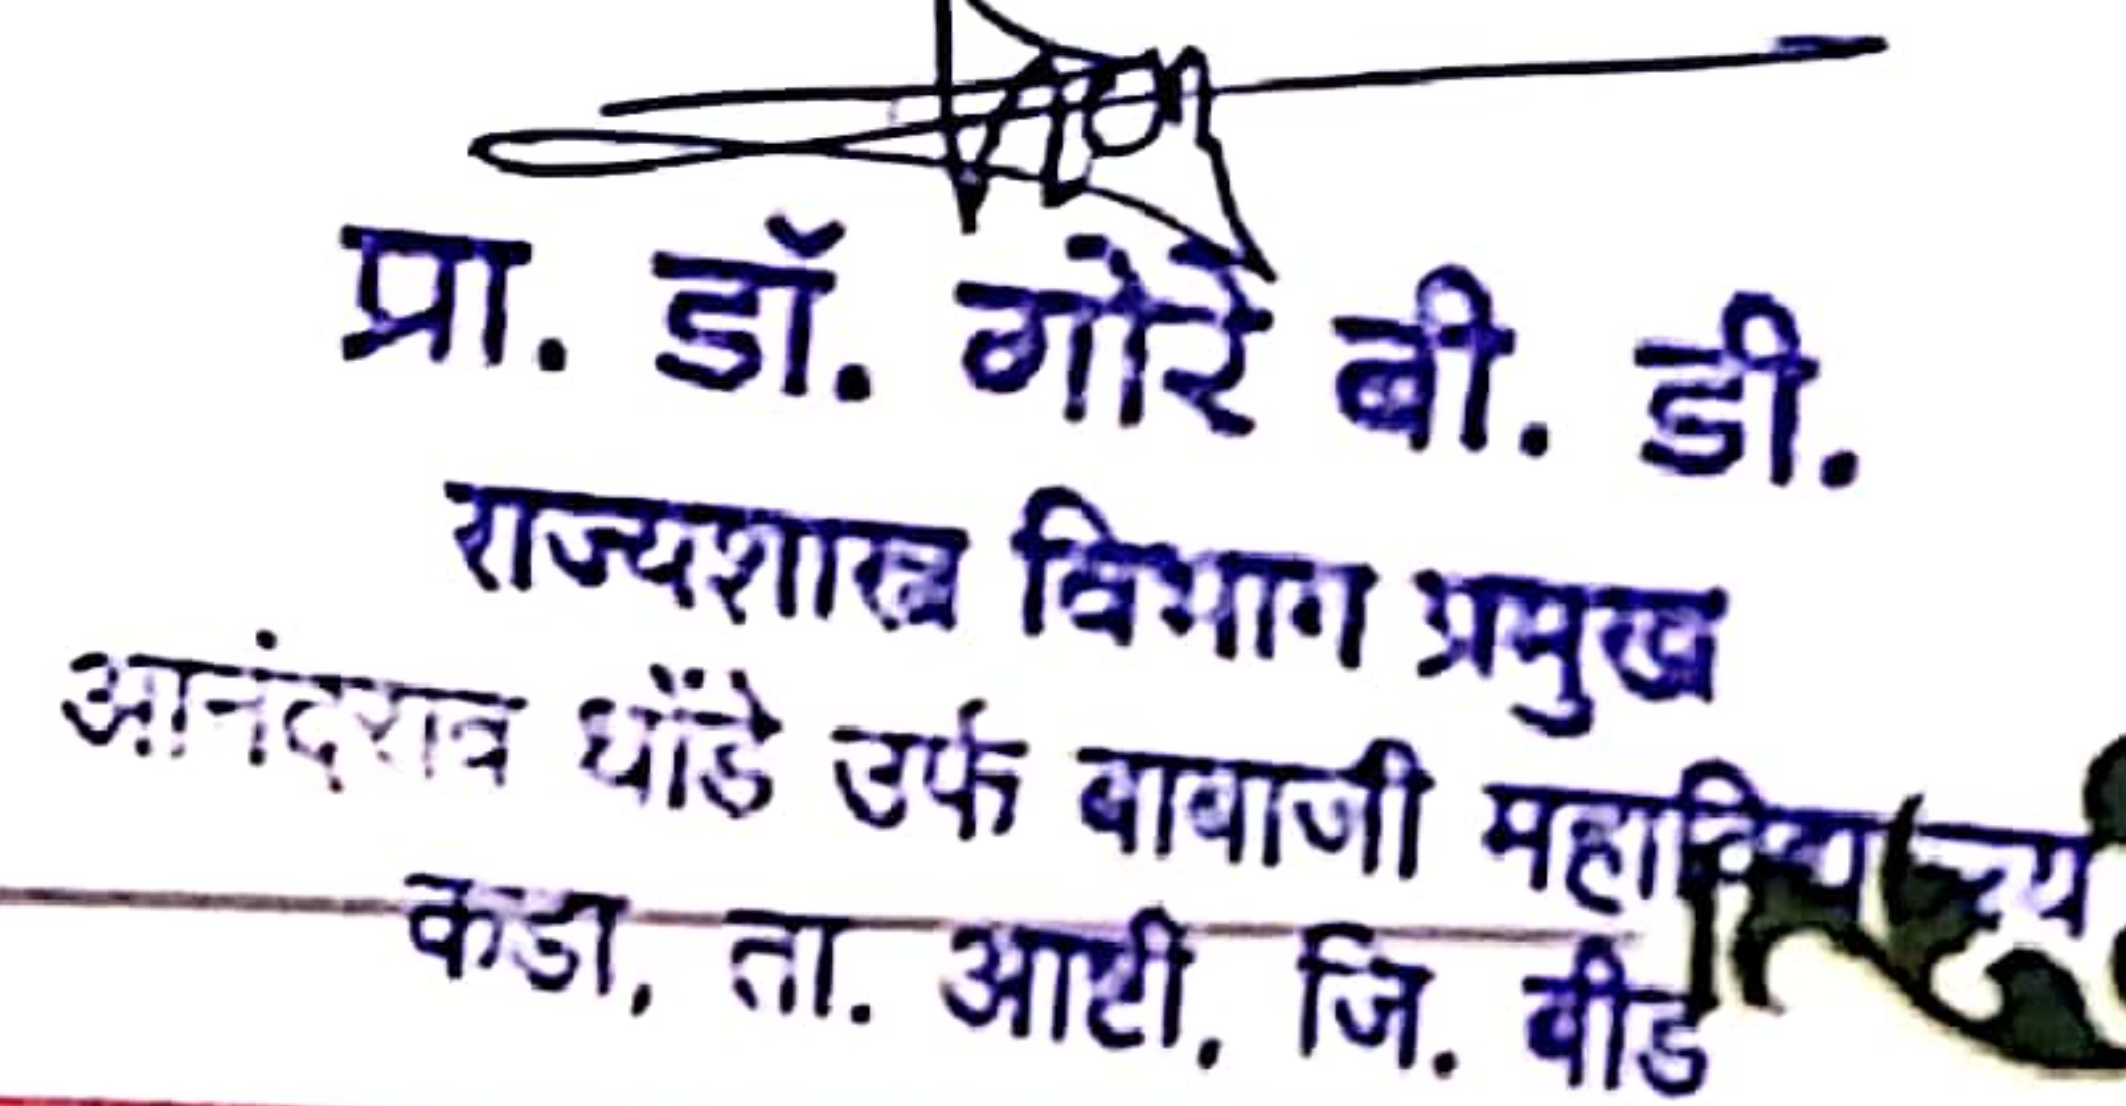 प्रा. डॉ. गोरे बी. डी.
राज्यशास्त्र विभाग प्रमुख
आनंदराव धोंडे उर्फ बाबाजी महाविद्यालय
कडा, ता. आष्टी, जि. बीड